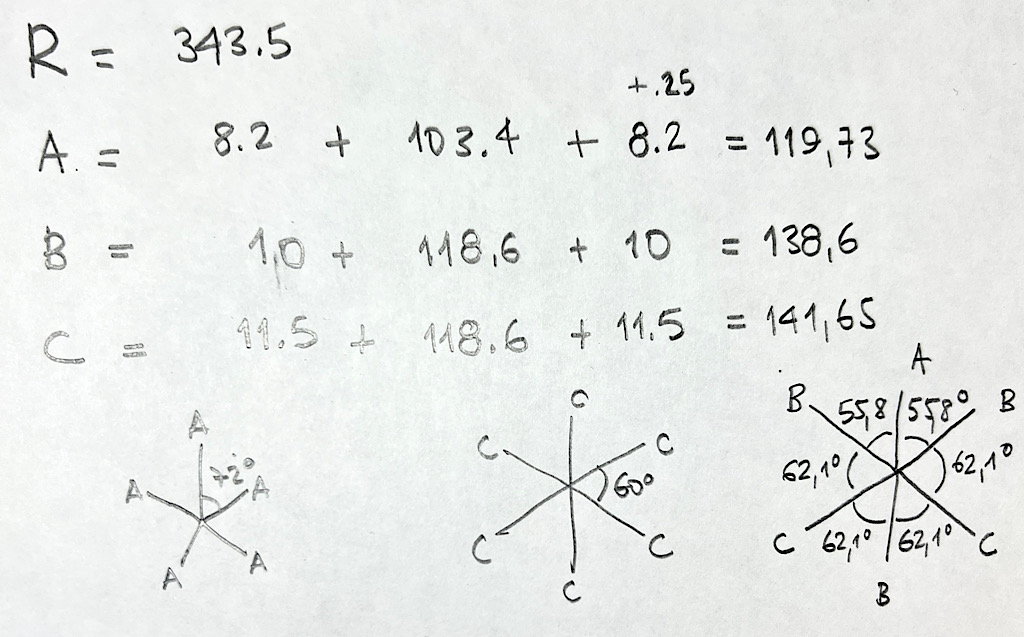 R = 343.5
+.25
A. = 8.2 + 103.4 + 8.2 = 119,73
B = 1,0 + 118,6 + 10 = 138,6
C = 11.5 + 118.6 + 11.5 = 141,65
A
72°
A A
A A
C
C C
60°
C C
C
A
B 55,8 55,8° B
62,1° 62,1°
C 62,1° 62,1° C
B